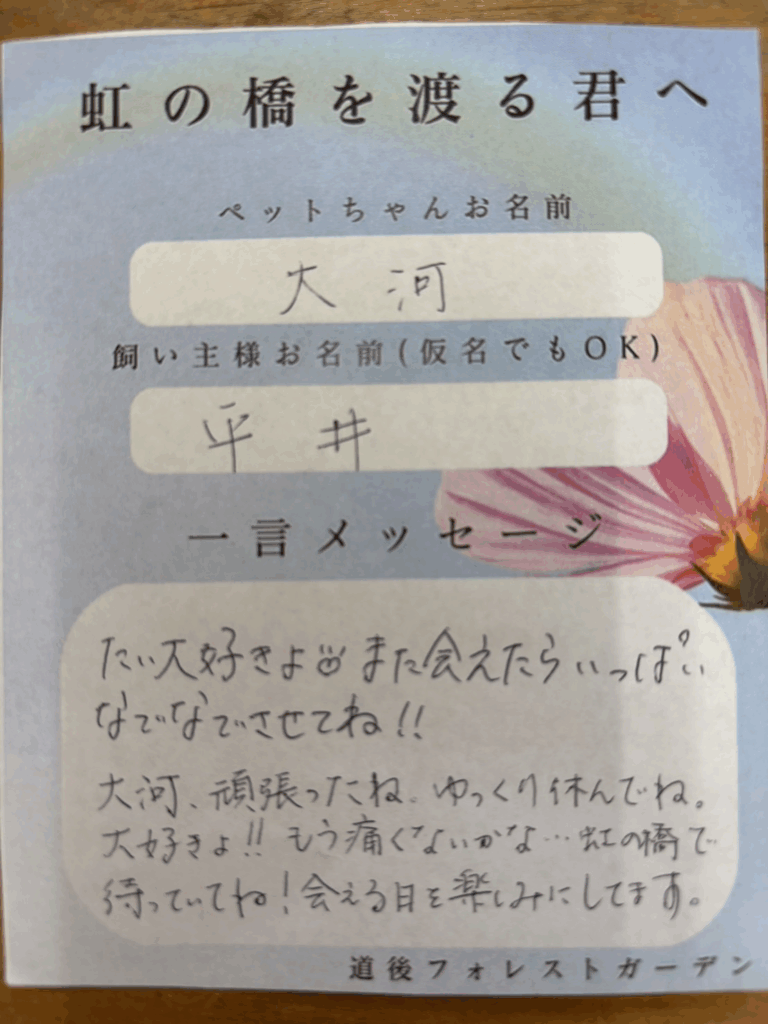 虹の橋を渡る君へ
ペットちゃんお名前
大河
飼い主様お名前(仮名でもOK)
平井
一言メッセージ
たい大好きよ また会えたらいっぱい
なでなでさせてね!!
大河、頑張ったね。ゆっくり休んでね。
大好きよ!! もう痛くないかな…虹の橋で
待っていてね!会える日を楽しみにしてます。
道後フォレストガーデン